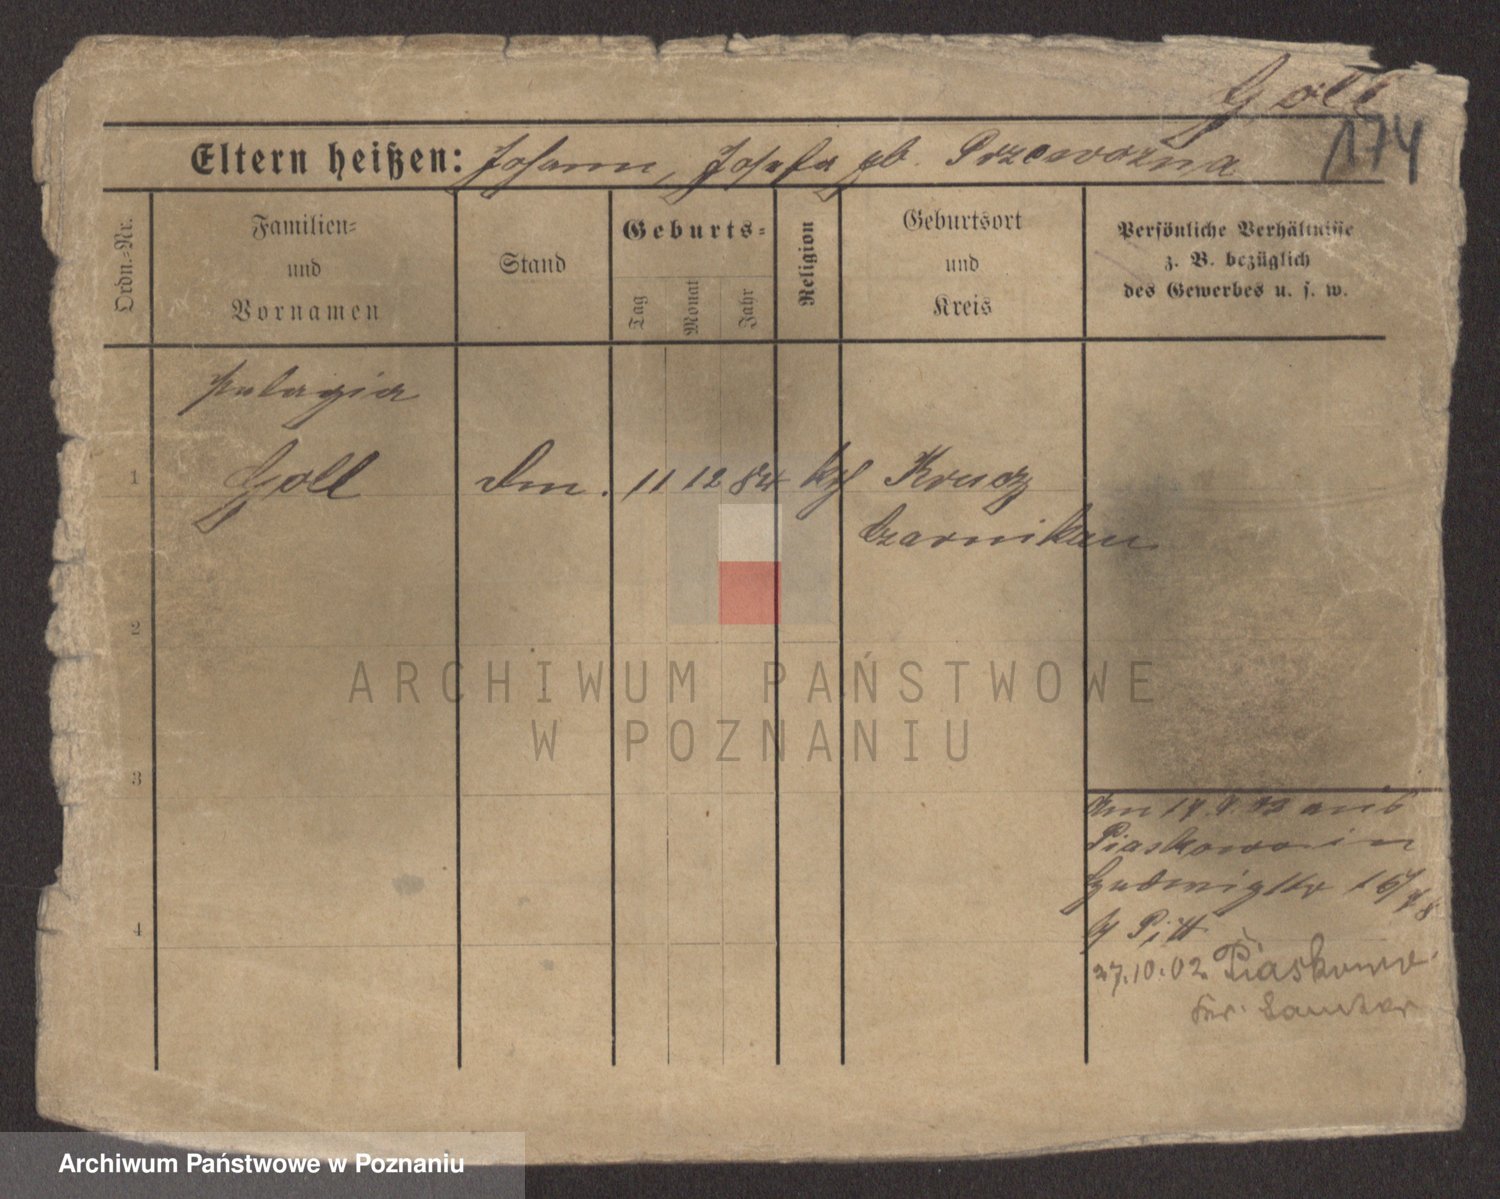 Goll
174
Eltern heißen: Johann, Josefa gb. Przewozna
Ordn.-Nr.
Familien-
und
Vornamen
Stand
Geburts-
Tag
Monat
Jahr
Religion
Geburtsort
und
Kreis
Persönliche Verhältnisse
z. B. bezüglich
des Gewerbes u. s. w.
Pelagia
1 Goll Dm. 11 12 84 kth Krucz
Czarnikau
2
3
4
Piaskowo in
27.10.02 Piaskowo
Kr. Samter
ARCHIWUM PAŃSTWOWE
W POZNANIU
Archiwum Państwowe w Poznaniu